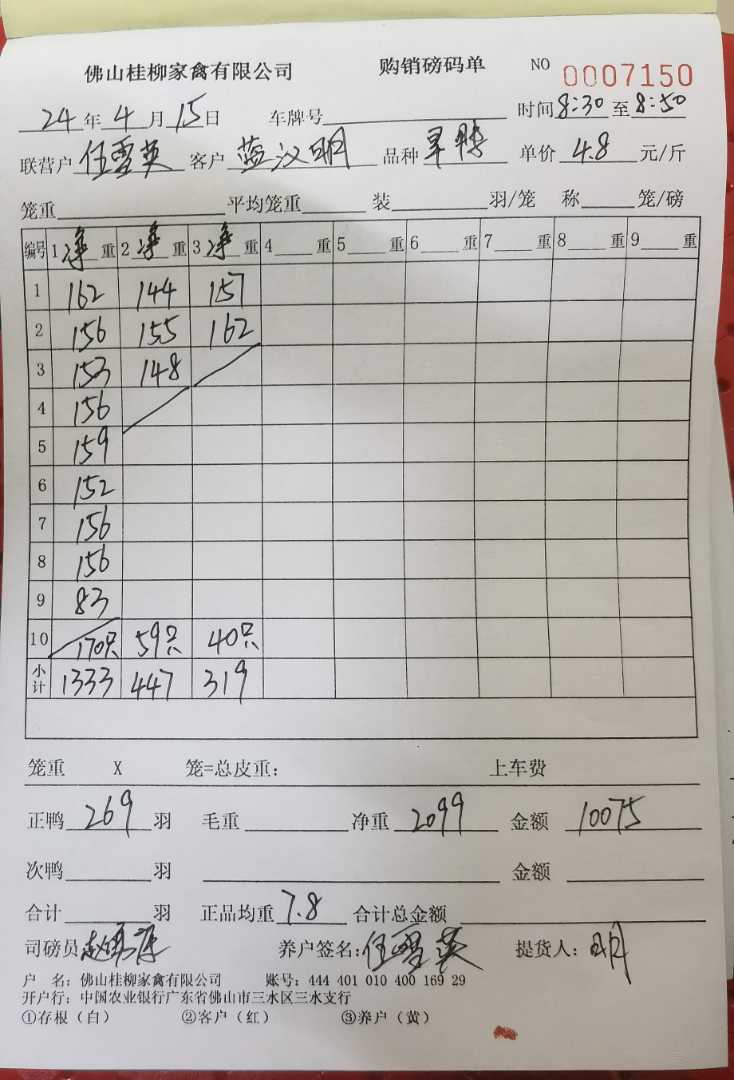 佛山桂柳家禽有限公司 购销磅码单 NO 0007150
24年4月15日 车牌号 时间8:30至8:50
联营户任雪英 客户蓝汉明 品种 单价4.8元/斤
笼重 平均笼重 装 羽/笼 称 笼/磅
编号 1净重 2净重 3净重 4 重 5 重 6 重 7 重 8 重 9 重
1 162 144 157
2 156 155 162
3 153 148
4 156
5 159
6 152
7 156
8 156
9 83
10 170只 59只 40只
小计 1333 447 319
笼重 X 笼=总皮重: 上车费
正鸭269羽 毛重 净重2099 金额10075
次鸭 羽 金额
合计 羽 正品均重7.8 合计总金额
司磅员 养户签名:任雪英 提货人:明
户 名: 佛山桂柳家禽有限公司 账号: 444 401 010 400 169 29
开户行: 中国农业银行广东省佛山市三水区三水支行
①存根(白) ②客户(红) ③养户(黄)